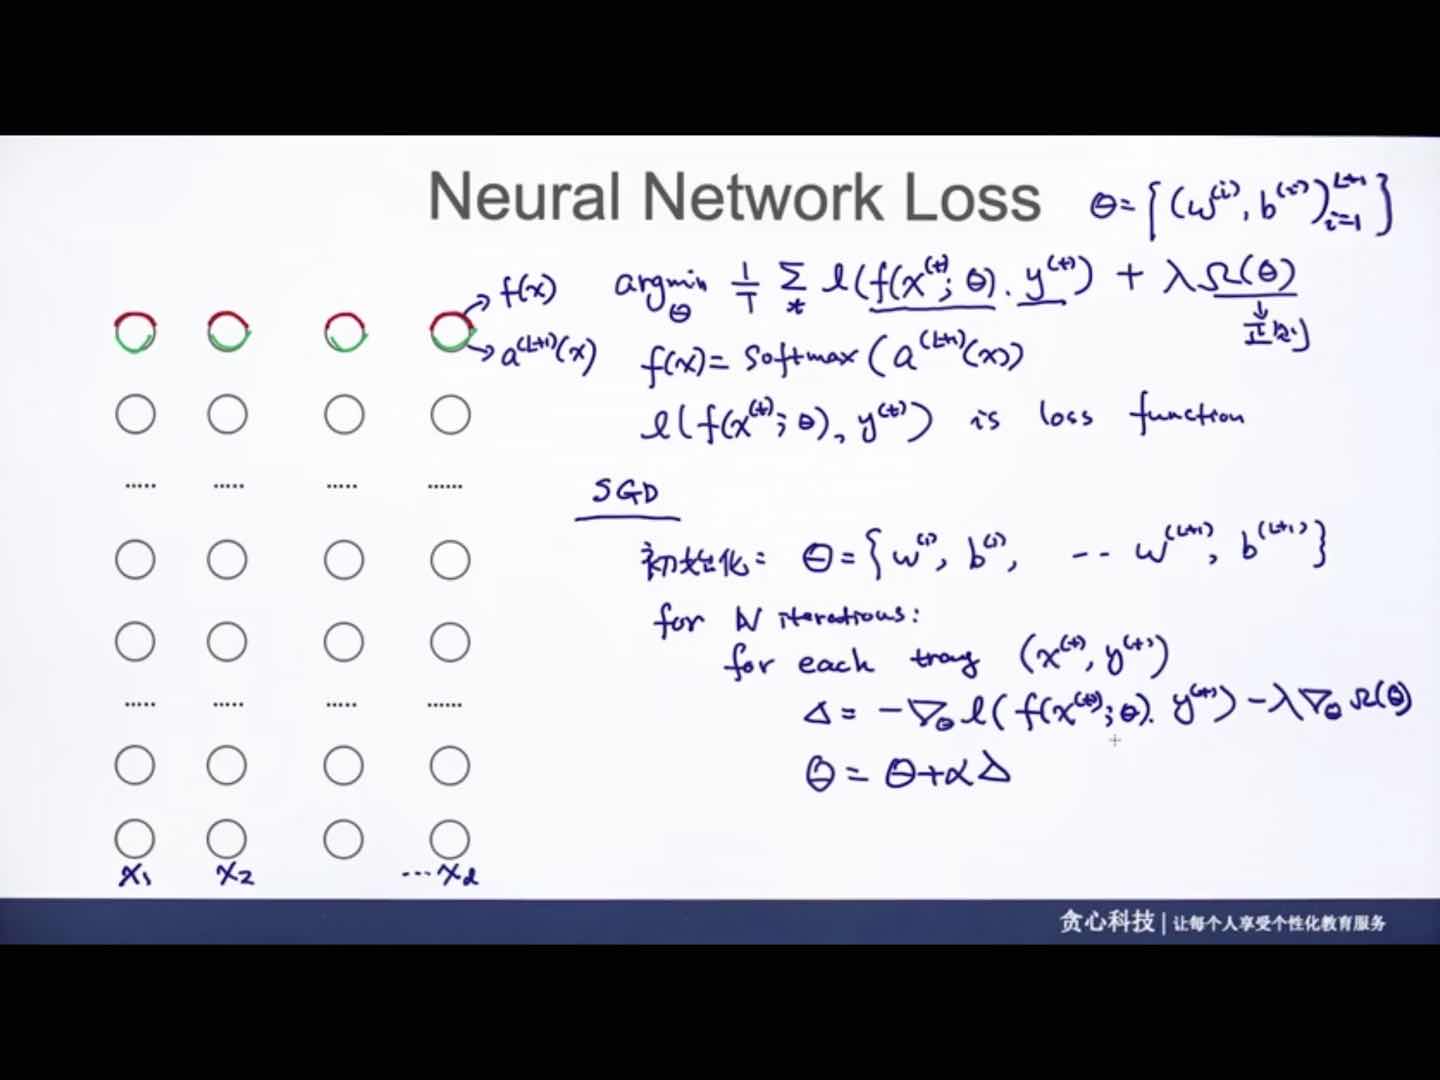 Neural Network Loss
θ = {(w^(i), b^(i))_{i=1}^{L+1}}
f(x)
argmin_θ 1/T Σ_t l(f(x^(t); θ). y^(t)) + λΩ(θ)
↓
正则
a^(L+1)(x)
f(x) = softmax(a^(L+1)(x))
l(f(x^(t); θ), y^(t)) is loss function
.....
.....
.....
......
SGD
初始化: θ = {w^(1), b^(1), -- w^(L+1), b^(L+1)}
for N iterations:
for each (x^(t), y^(t))
.....
.....
.....
......
Δ = -∇_θ l(f(x^(t); θ). y^(t)) - λ∇_θ Ω(θ)
θ = θ + αΔ
x₁ x₂ ... x_d
贪心科技 | 让每个人享受个性化教育服务